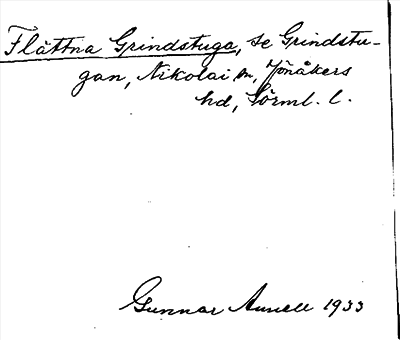 Flättna Grindstuga, se Grindstu-
gan, Nikolai sn, Jönåkers
hd, Sörml. l.
Gunnar Aunell 1933